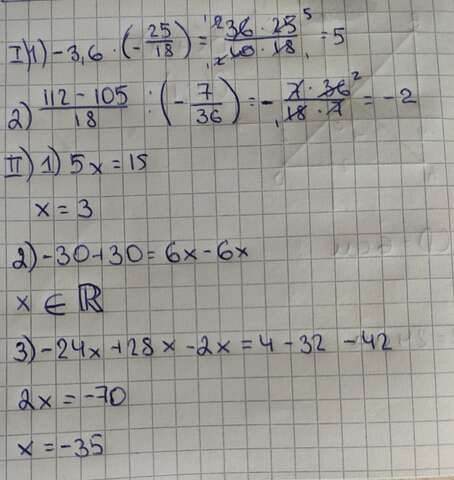 I) 1) -3,6 · (-25/18) = 36 · 25/10 · 18 = 5
2) 112 - 105/18 : (-7/36) = - 7 · 36/18 · 7 = -2
II) 1) 5x = 15
x = 3
2) -30+30 = 6x - 6x
x ∈ ℝ
3) -24x + 28x - 2x = 4 - 32 - 42
2x = -70
x = -35